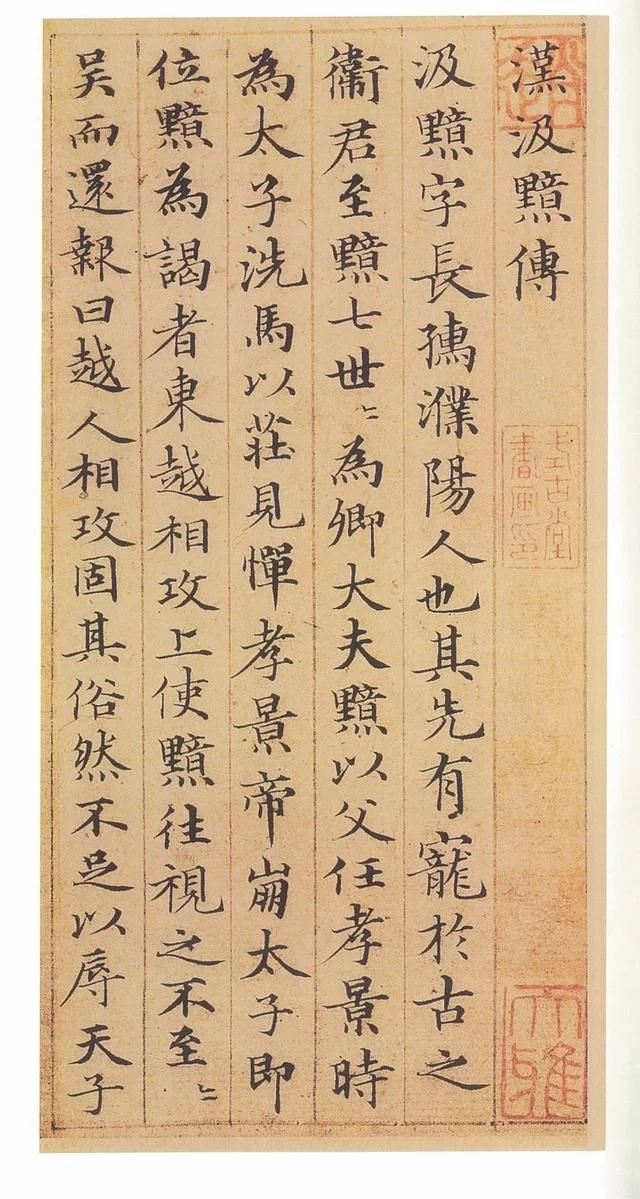 漢汲黯傳
汲黯字長孺濮陽人也其先有寵於古之
衛君至黯七世〻為卿大夫黯以父任孝景時
為太子洗馬以莊見憚孝景帝崩太子即
位黯為謁者東越相攻上使黯往視之不至〻
吴而還報曰越人相攻固其俗然不足以辱天子
式古堂
書画印
大雅